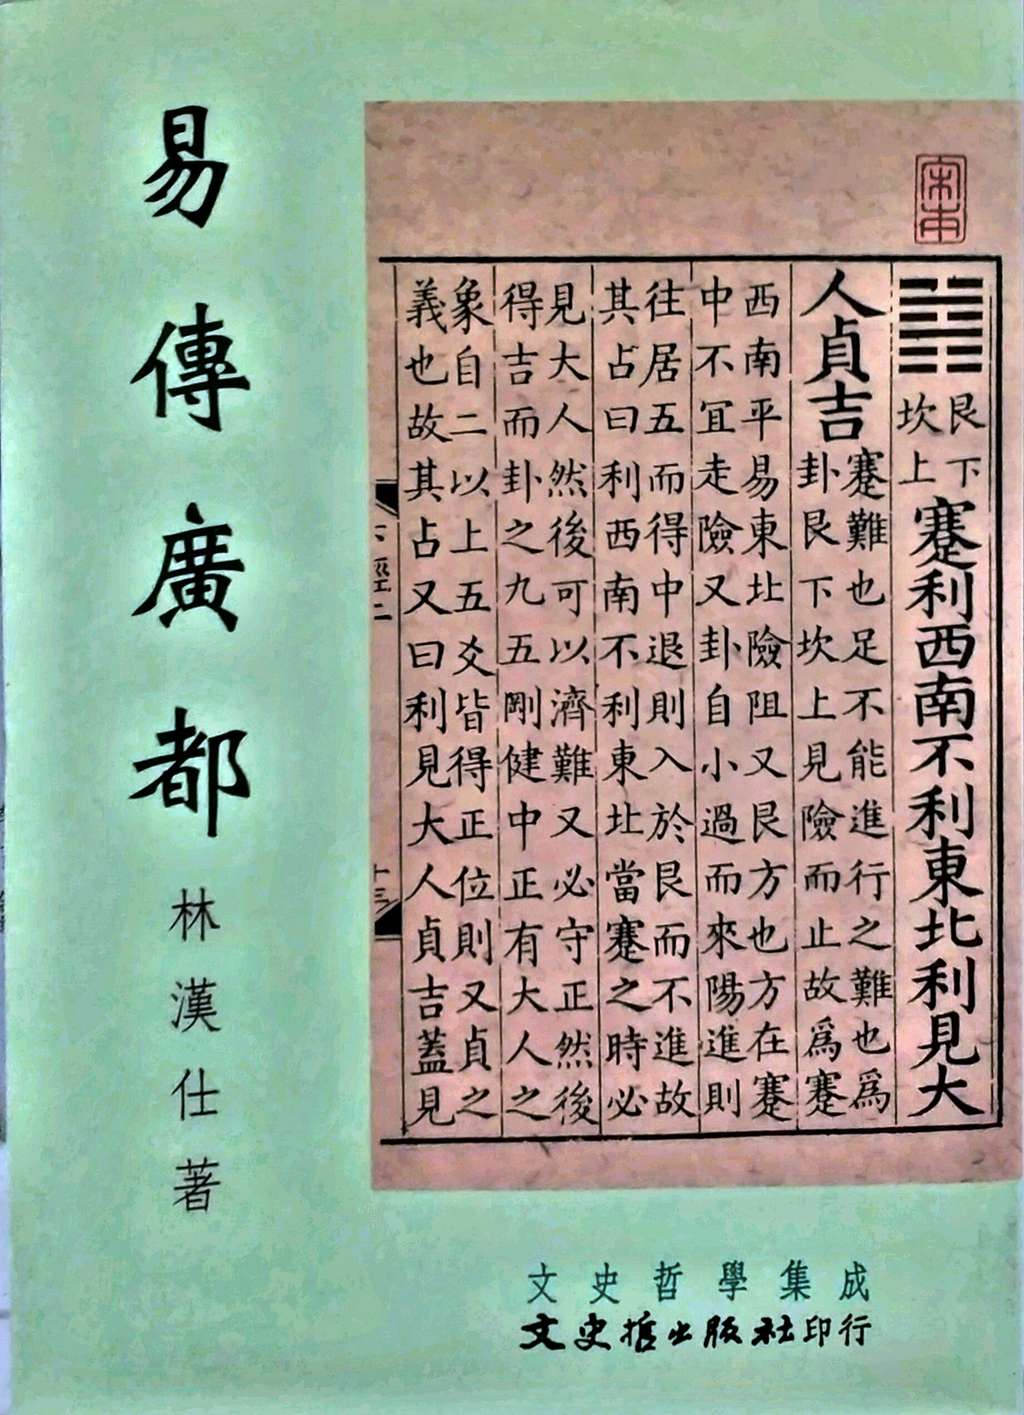 易傳廣都
林漢仕著
宋本
艮下
坎上
蹇利西南不利東北利見大
人貞吉
蹇難也足不能進行之難也爲
卦艮下坎上見險而止故爲蹇
西南平易東北險阻又艮方也方在蹇
中不宜走險又卦自小過而來陽進則
往居五而得中退則入於艮而不進故
其占曰利西南不利東北當蹇之時必
見大人然後可以濟難又必守正然後
得吉而卦之九五剛健中正有大人之
象自二以上五爻皆得正位則又貞之
義也故其占又曰利見大人貞吉蓋見
下經二
十三
文史哲學集成
文史哲出版社印行